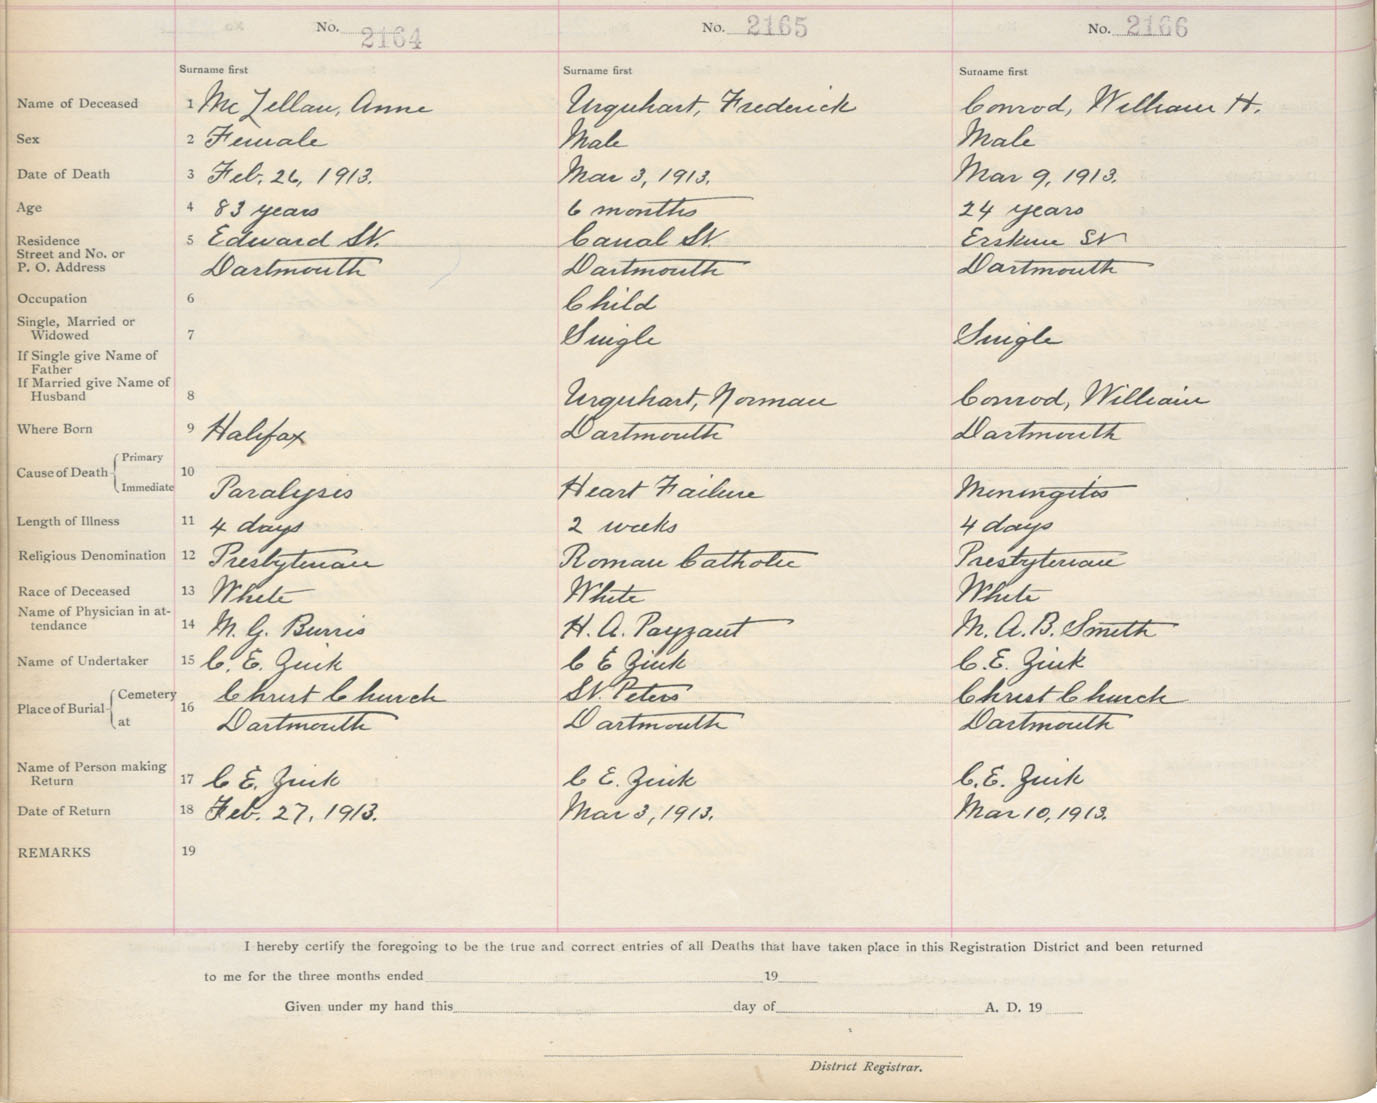 No. 2164 No. 2165 No. 2166
Surname first Surname first Surname first
Name of Deceased 1 McLellan, Anne Urquhart, Frederick Conrod, William H.
Sex 2 Female Male Male
Date of Death 3 Feb. 26, 1913. Mar 3, 1913. Mar 9, 1913.
Age 4 83 years 6 months 24 years
Residence 5 Edward St. Canal St Erskine St
Street and No. or
P. O. Address Dartmouth Dartmouth Dartmouth
Occupation 6 Child
Single, Married or
Widowed 7 Single Single
If Single give Name of
Father
If Married give Name of
Husband 8 Urquhart, Norman Conrod, William
Where Born 9 Halifax Dartmouth Dartmouth
Primary
Cause of Death 10
Immediate Paralysis Heart Failure Meningitis
Length of Illness 11 4 days 2 weeks 4 days
Religious Denomination 12 Presbyterian Roman Catholic Presbyterian
Race of Deceased 13 White White White
Name of Physician in at-
tendance 14 M. G. Burris H. A. Payzant M. A. B. Smith
Name of Undertaker 15 C. E. Zink C E Zink C. E. Zink
Cemetery Christ Church St. Peters Christ Church
Place of Burial 16
at Dartmouth Dartmouth Dartmouth
Name of Person making
Return 17 C E. Zink C E. Zink C. E. Zink
Date of Return 18 Feb. 27, 1913. Mar 3, 1913. Mar 10, 1913.
REMARKS 19
I hereby certify the foregoing to be the true and correct entries of all Deaths that have taken place in this Registration District and been returned
to me for the three months ended 19
Given under my hand this day of A. D. 19
District Registrar.